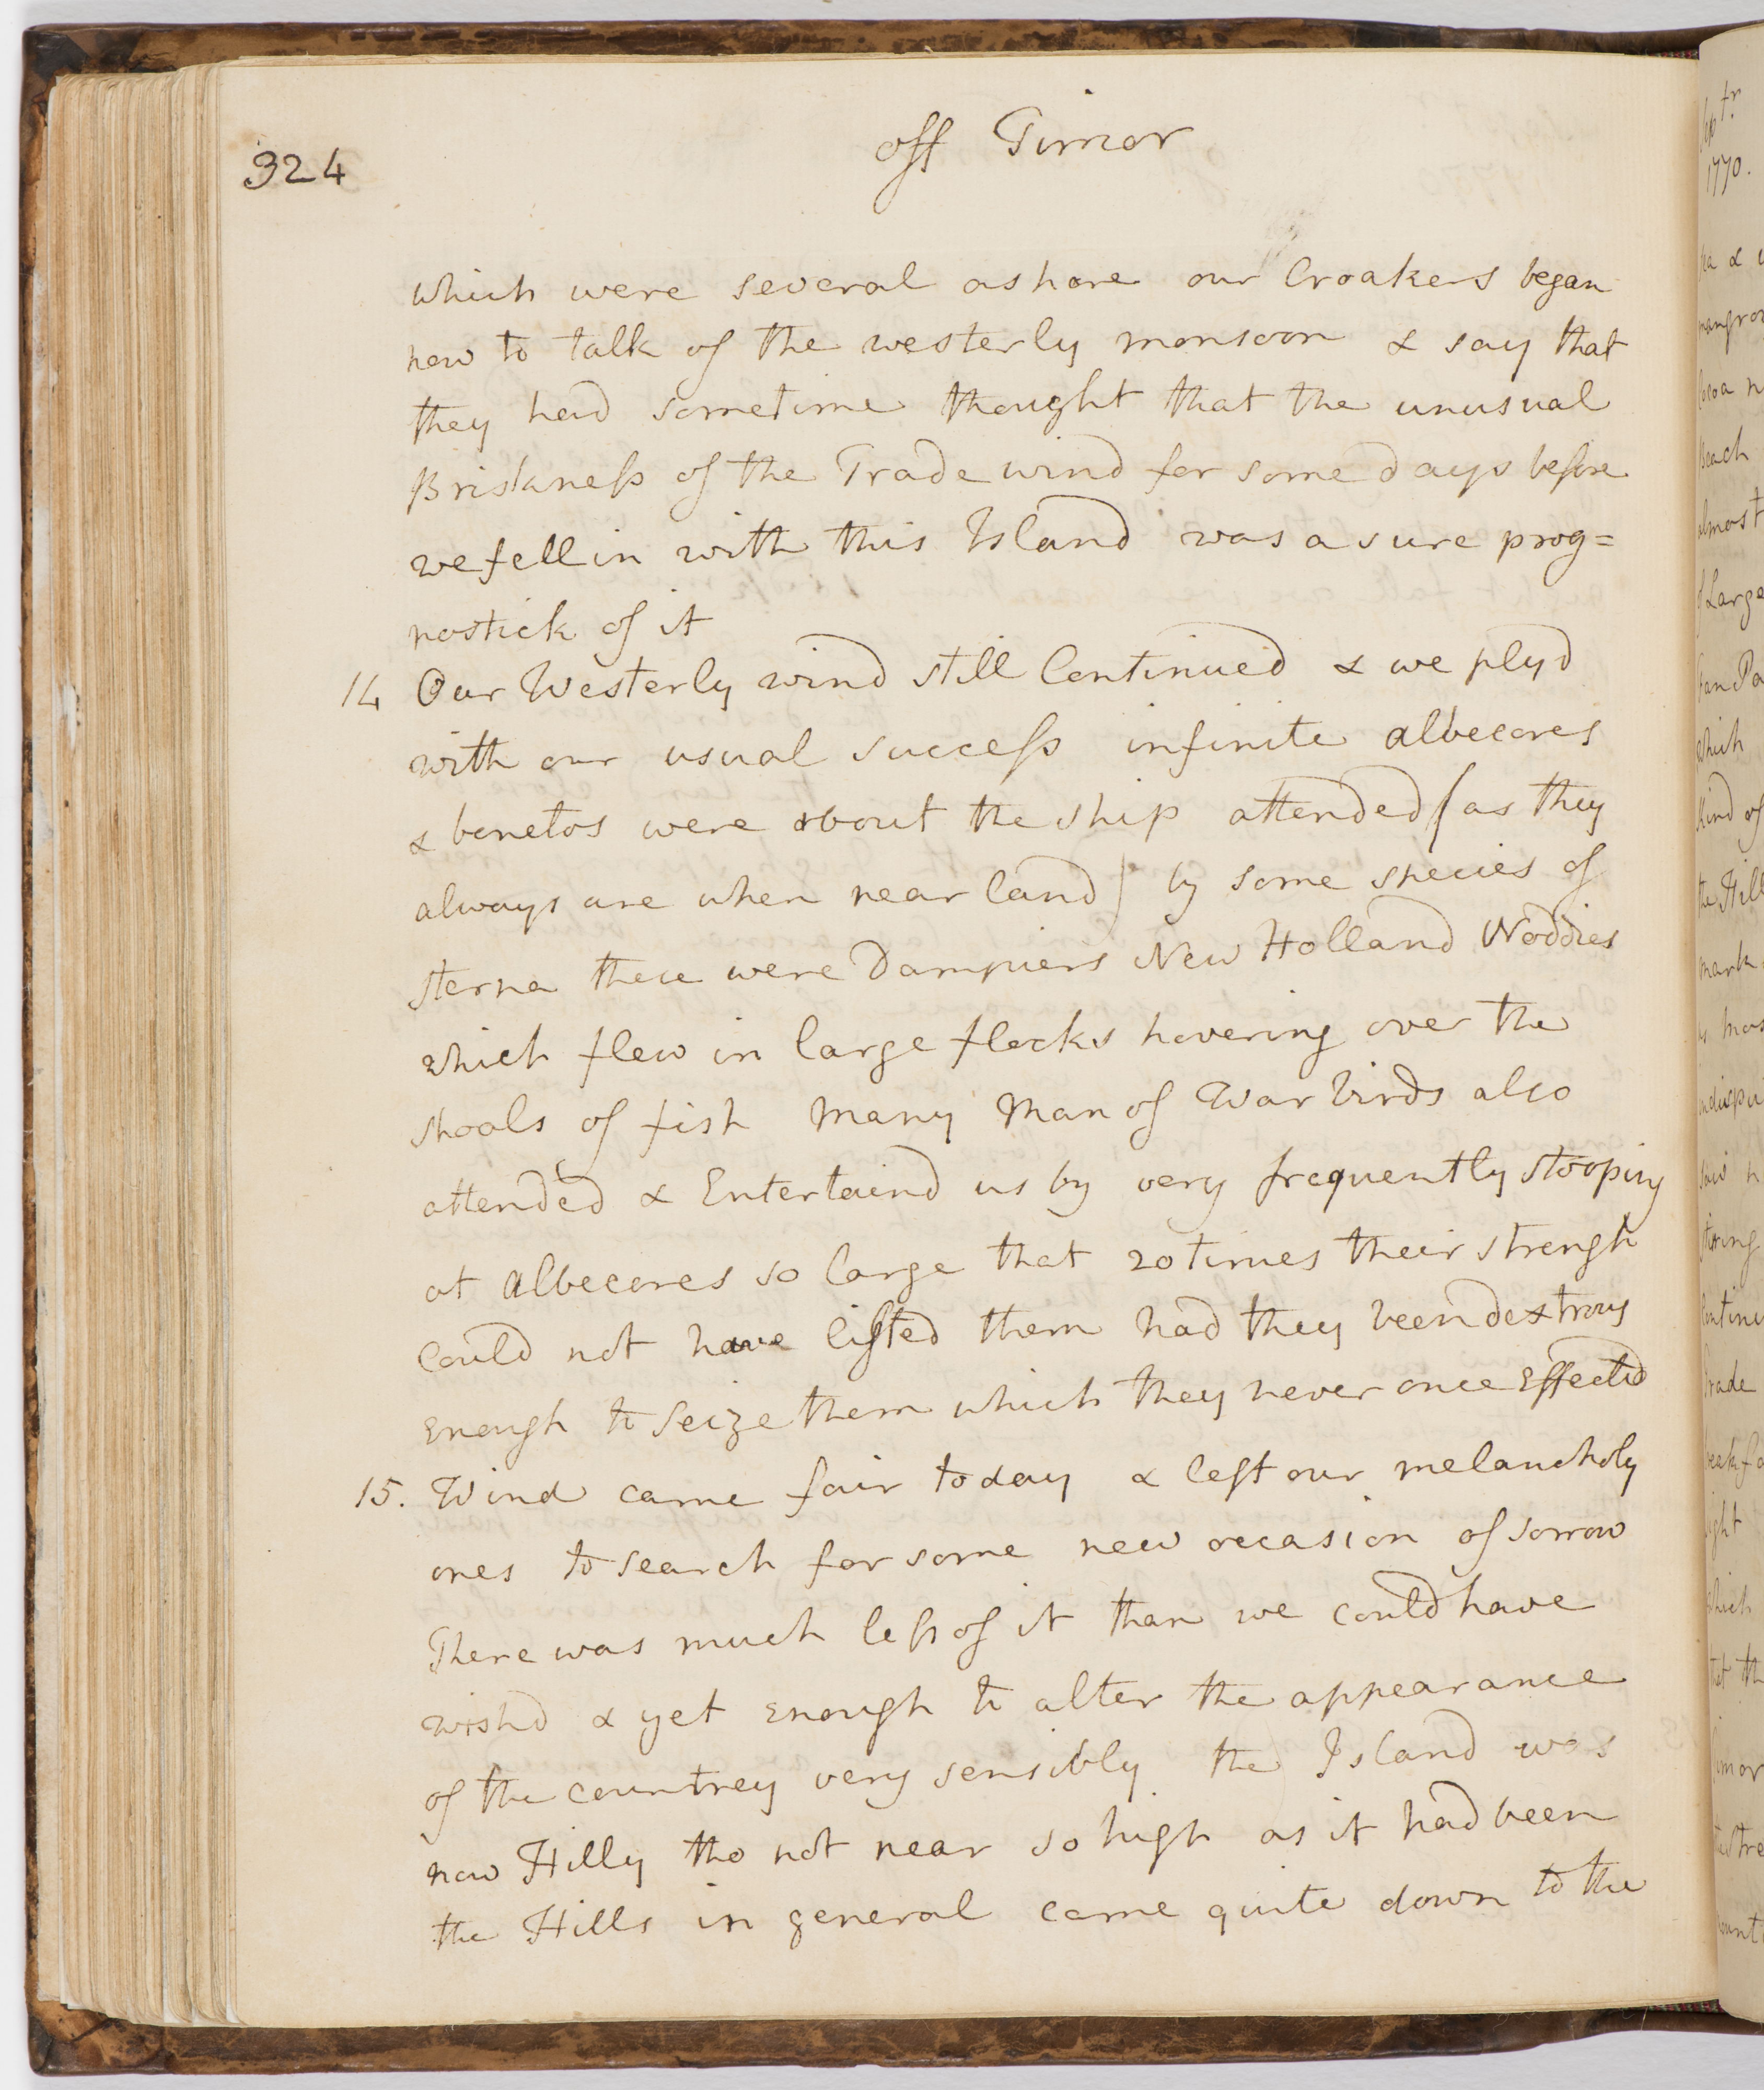 324
off Timor
which were several ashore our Croakers began
now to talk of the westerly monsoon & say that
they had sometime thought that the unusual
Briskness of the Trade wind for some days before
we fell in with this Island was a sure prog=
nostick of it
14 Our Westerly wind still Continued & we plyd
with our usual success infinite albecores
& bonetos were about the ship attended (as they
always are when near land) by some species of
sterna these were Dampiers New Holland Noddies
which flew in large flocks hovering over the
shoals of fish Many Man of War birds also
attended & Entertaind us by very frequently stooping
at albecores so large that 20 times their strengh
could not have lifted them had they been dextrous
enough to seize them which they never once Effected
15. Wind came fair today & left our melancholy
ones to search for some new occasion of sorrow
There was much less of it than we could have
wishd & yet enough to alter the appearance
of the countrey very sensibly the Island was
now Hilly tho not near so high as it had been
the Hills in general came quite down to the
Sepr.
1770.